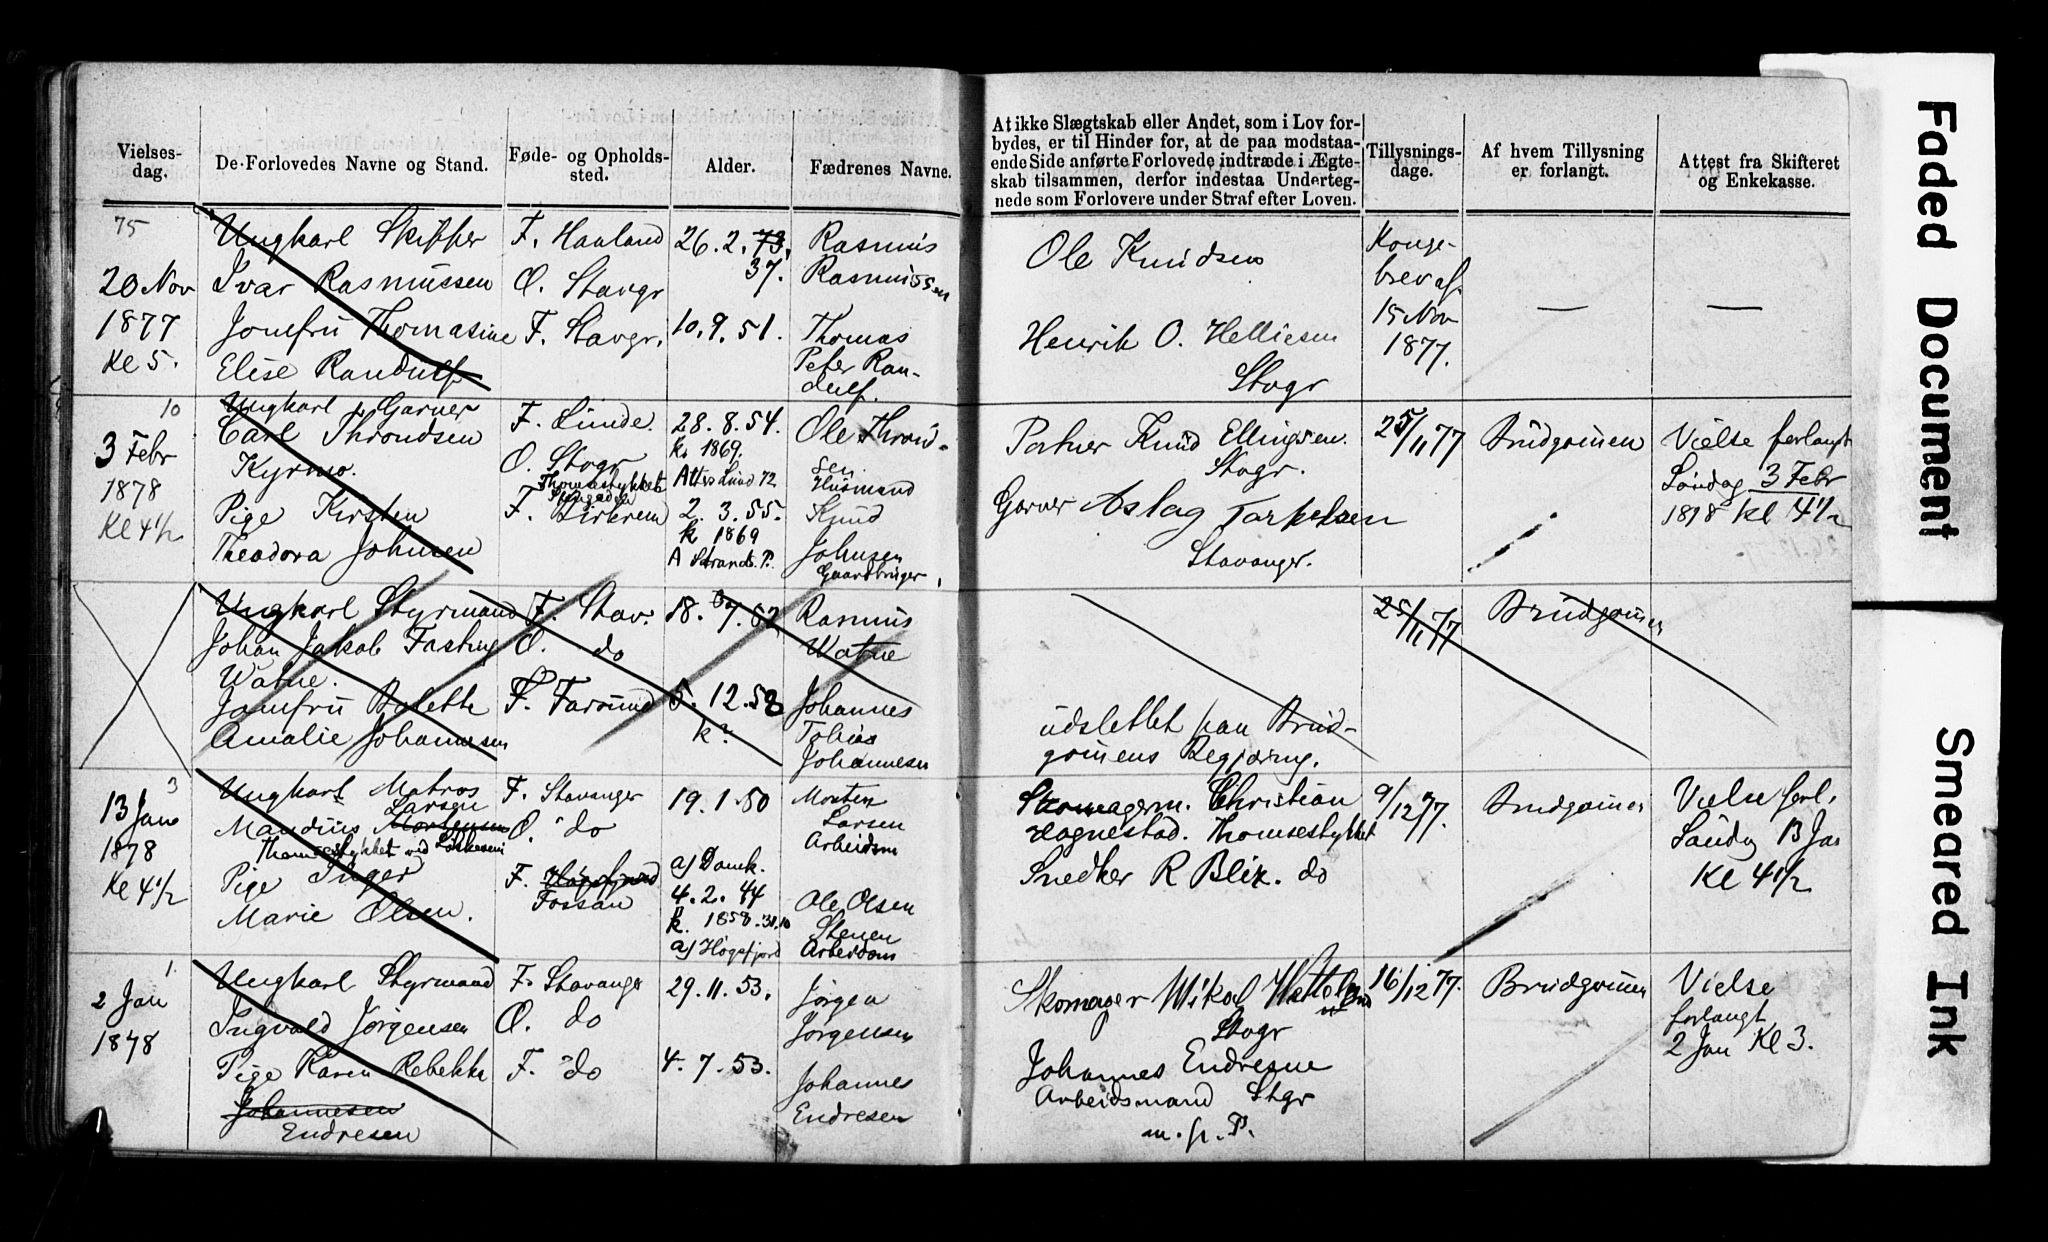 Vielses-
dag.
De Forlovedes Navne og Stand.
Føde- og Opholds-
sted.
Alder.
Fædrenes Navne.
At ikke Slægtskab eller Andet, som i Lov for-
bydes, er til Hinder for, at de paa modstaa-
ende Side anførte Forlovede indtræde i Ægte-
skab tilsammen, derfor indestaa Underteg-
nede som Forlovere under Straf efter Loven.
Tillysnings-
dage.
Af hvem Tillysning
er forlangt.
Attest fra Skifteret
og Enkekasse.
75
20 Nov
1877
Kl 5.
Ungkarl Skipper
Ivar Rasmussen
Jomfru Thomasine
Elise Randulf
F. Haaland
O. Stavgr
F. Stavgr.
26. 2. 73.
37.
10. 9. 51.
Rasmus
Rasmussen
Thomas
Peter Ran-
dulf.
Ole Knudsen
Henrik O. Helliesen
Stvgr
Konge-
brev af
15 Nov
1877.
—
—
10
3 Febr
1878
Kl 4½
Ungkarl Garver
Carl Throndsen
Kyrmo.
Pige Kirsten
Theodora Johnsen
F. Lunde.
O. Stvgr
Thomsestykket
F. Birkrem
28. 8. 54.
k. 1869.
Att. Lund 72
2. 3. 55.
k 1869
A Strands P.
Ole Thrond-
sen
Husmand
Knud
Johnsen
Gaardbruger
Portner Knud Ellingsen.
Stvgr.
Garver Aslag Tarkelsen
Stavanger.
25/11 77
Brudgommen
Vielse forlangt
Søndag 3 Febr
1878 Kl 4½
Ungkarl Styrmand
Johan Jakob Fasting
Watne.
Jomfru Bolette
Amalie Johannesen
F. Stav.
O. do
F. Farsund
18. 7. 52
5. 12. 52
k?
Rasmus
Watne
Johannes
Tobias
Johannesen
udslettet paa Brud-
gommens Begjæring.
25/11 77
Brudgommen
3
13 Jan
1878
Kl 4½
Ungkarl Matros
Larsen
Maudius Mortensen
Thomsestykket ved
Pige Inger
Marie Olsen.
F. Stavanger
O. do
F. Høgsfjord
Fossan
19. 1. 50
a/ Domk.
4. 2. 44
k. 1858. 31.10
a/ Høgsfjord
Morten
Larsen
Arbeidsm
Ole Olsen
Stenen
Arbeidsm
Skomagerm. Christian
Hognestad. Thomsestykket
Snedker R Blix. do
9/12 77.
Brudgommen
Vielse forl.
Søndag 13 Jan
Kl 4½
1.
2 Jan
1878
Ungkarl Styrmand
Ingvald Jørgensen
Pige Karen Rebekka
Johannesen
Endresen
F. Stavanger
O. do
F. do
29. 11. 53.
4. 7. 53.
Jørgen
Jørgensen
Johannes
Endresen
Skomager Mikal
Stvgr
Johannes Endresen
Arbeidsmand Stgr
m. f. P.
16/12 77.
Brudgommen
Vielse
forlangt
2 Jan Kl 3.
Faded Document
Smeared Ink